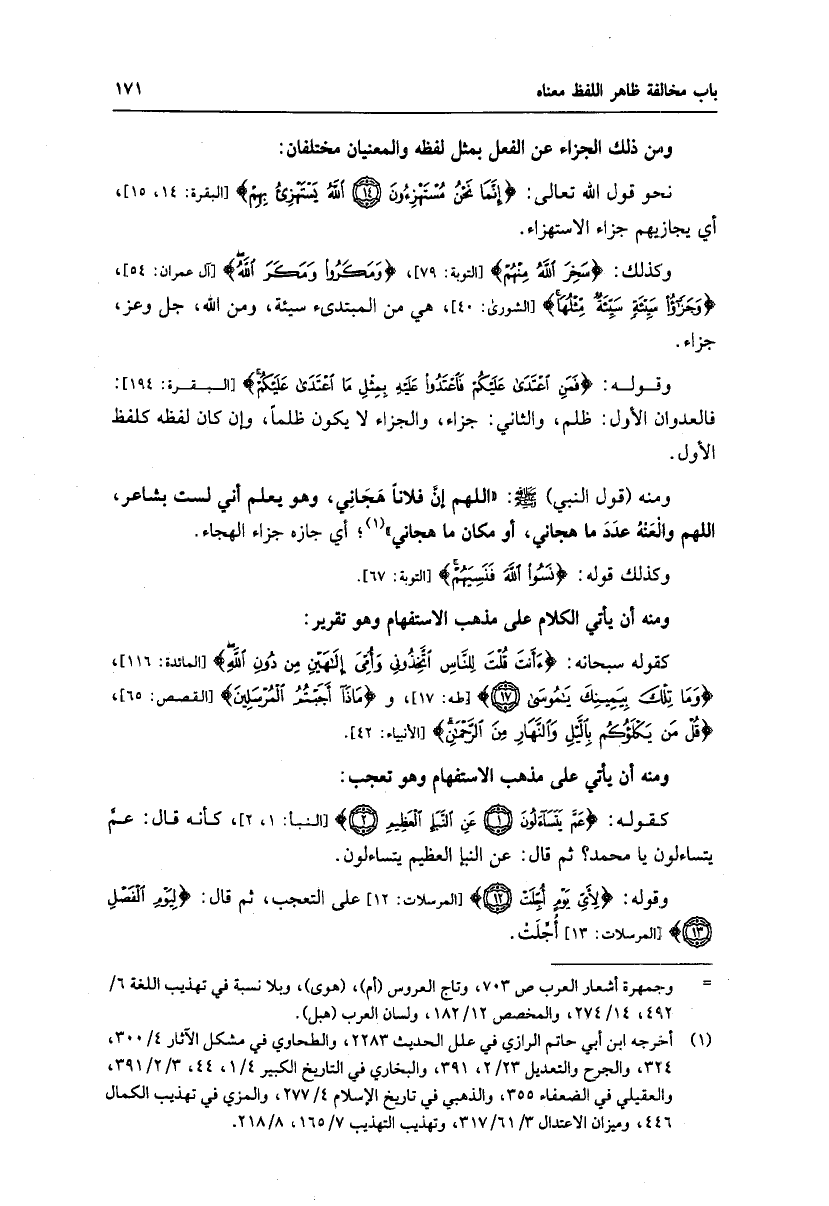 باب مخالفة ظاهر اللفظ معناه ١٧١
ومن ذلك الجزاء عن الفعل بمثل لفظه والمعنيان مختلفان:
نحو قول الله تعالى: ﴿إِنَّمَا نَحْنُ مُسْتَهْزِءُونَ ﴿١٤﴾ اللَّهُ يَسْتَهْزِئُ بِهِمْ﴾ [البقرة: ١٤، ١٥]،
أي يجازيهم جزاء الاستهزاء.
وكذلك: ﴿سَخِرَ اللَّهُ مِنْهُمْ﴾ [التوبة: ٧٩]، ﴿وَمَكَرُوا وَمَكَرَ اللَّهُ﴾ [آل عمران: ٥٤]،
﴿وَجَزَٰٓؤُا۟ سَيِّئَةٍ سَيِّئَةٌ مِّثْلُهَا﴾ [الشورىٰ: ٤٠]، هي من المبتدىء سيئة، ومن الله، جل وعز،
جزاء.
وقوله: ﴿فَمَنِ اعْتَدَىٰ عَلَيْكُمْ فَاعْتَدُوا عَلَيْهِ بِمِثْلِ مَا اعْتَدَىٰ عَلَيْكُمْ﴾ [البقرة: ١٩٤]:
فالعدوان الأول: ظلم، والثاني: جزاء، والجزاء لا يكون ظلماً، وإن كان لفظه كلفظ
الأول.
ومنه (قول النبي) ﷺ: «اللهم إنَّ فلاناً هَجَانِي، وهو يعلم أني لست بشاعر،
اللهم والْعَنْهُ عدَدَ ما هجاني، أو مكان ما هجاني»(١)؛ أي جازه جزاء الهجاء.
وكذلك قوله: ﴿نَسُوا اللَّهَ فَنَسِيَهُمْ﴾ [التوبة: ٦٧].
ومنه أن يأتي الكلام على مذهب الاستفهام وهو تقرير:
كقوله سبحانه: ﴿ءَأَنتَ قُلْتَ لِلنَّاسِ اتَّخِذُونِي وَأُمِّيَ إِلَٰهَيْنِ مِن دُونِ اللَّهِ﴾ [المائدة: ١١٦]،
﴿وَمَا تِلْكَ بِيَمِينِكَ يَٰمُوسَىٰ ﴿١٧﴾﴾ [طه: ١٧]، و ﴿مَاذَا أَجَبْتُمُ الْمُرْسَلِينَ﴾ [القصص: ٦٥]،
﴿قُلْ مَن يَكْلَؤُكُم بِاللَّيْلِ وَالنَّهَارِ مِنَ الرَّحْمَٰنِ﴾ [الأنبياء: ٤٢].
ومنه أن يأتي على مذهب الاستفهام وهو تعجب:
كقوله: ﴿عَمَّ يَتَسَاءَلُونَ ﴿١﴾ عَنِ النَّبَإِ الْعَظِيمِ ﴿٢﴾﴾ [النبأ: ١، ٢]، كأنه قال: عمَّ
يتساءلون يا محمد؟ ثم قال: عن النبإ العظيم يتساءلون.
وقوله: ﴿لِأَيِّ يَوْمٍ أُجِّلَتْ ﴿١٢﴾﴾ [المرسلات: ١٢] على التعجب، ثم قال: ﴿لِيَوْمِ الْفَصْلِ
﴿١٣﴾﴾ [المرسلات: ١٣] أُجِّلَتْ.
= وجمهرة أشعار العرب ص ٧٠٣، وتاج العروس (أم)، (هوى)، وبلا نسبة في تهذيب اللغة ٦/
٤٩٢، ١٤/ ٢٧٤، والمخصص ١٢/ ١٨٢، ولسان العرب (هبل).
(١) أخرجه ابن أبي حاتم الرازي في علل الحديث ٢٢٨٣، والطحاوي في مشكل الآثار ٤/ ٣٠٠،
٣٢٤، والجرح والتعديل ٢٣/ ٢، ٣٩١، والبخاري في التاريخ الكبير ١/٤، ٤٤، ٣٩١/٢/٣،
والعقيلي في الضعفاء ٣٥٥، والذهبي في تاريخ الإسلام ٤/ ٢٧٧، والمزي في تهذيب الكمال
٤٤٦، وميزان الاعتدال ٣/ ٣١٧/٦١، وتهذيب التهذيب ٧/ ١٦٥، ٢١٨/٨.